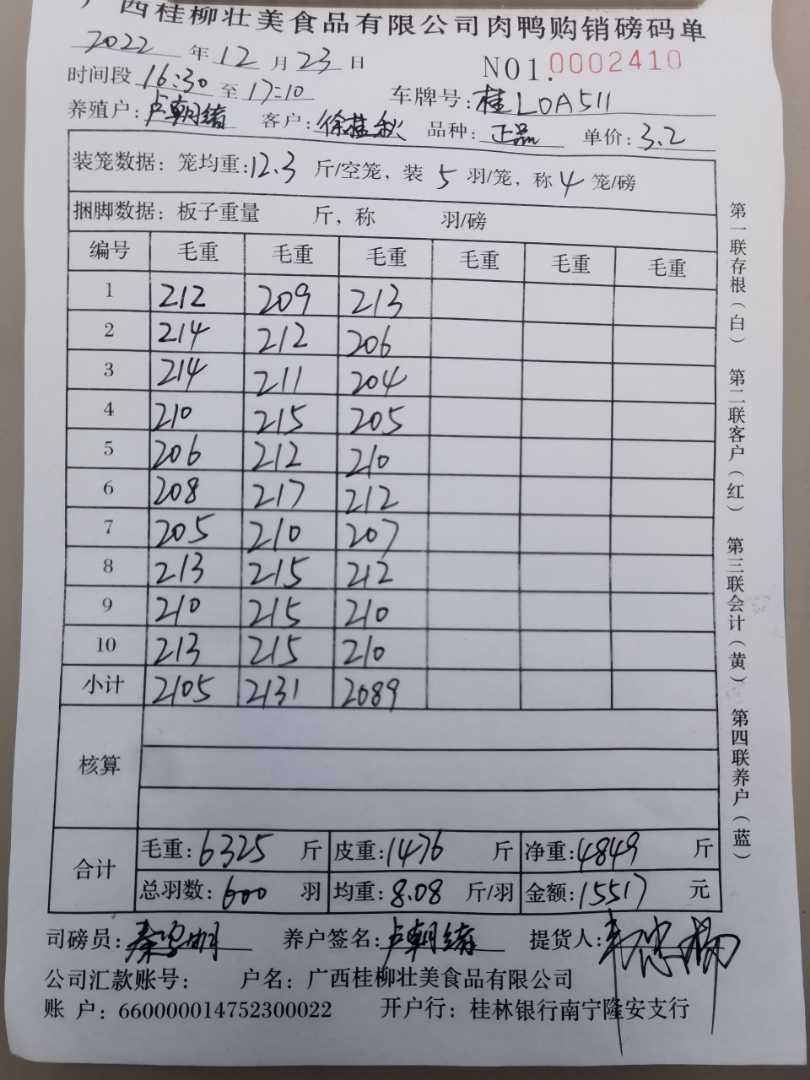 广西桂柳壮美食品有限公司肉鸭购销磅码单
2022 年 12 月 23 日 NO1.0002410
时间段 16:30 至 17:10 车牌号:桂L0A511
养殖户:卢朝绪 客户:徐桂秋 品种:正品 单价:3.2
装笼数据:笼均重:12.3 斤/空笼,装 5 羽/笼,称 4 笼/磅
捆脚数据:板子重量 斤,称 羽/磅
编号 毛重 毛重 毛重 毛重 毛重 毛重
1 212 209 213
2 214 212 206
3 214 211 204
4 210 215 205
5 206 212 210
6 208 217 212
7 205 210 207
8 213 215 212
9 210 215 210
10 213 215 210
小计 2105 2131 2089
核算
合计 毛重:6325 斤 皮重:1476 斤 净重:4849 斤
总羽数:600 羽 均重:8.08 斤/羽 金额:15517 元
司磅员: 养户签名:卢朝绪 提货人:
公司汇款账号: 户名:广西桂柳壮美食品有限公司
账 户:660000014752300022 开户行:桂林银行南宁隆安支行
第一联存根(白) 第二联客户(红) 第三联会计(黄) 第四联养户(蓝)